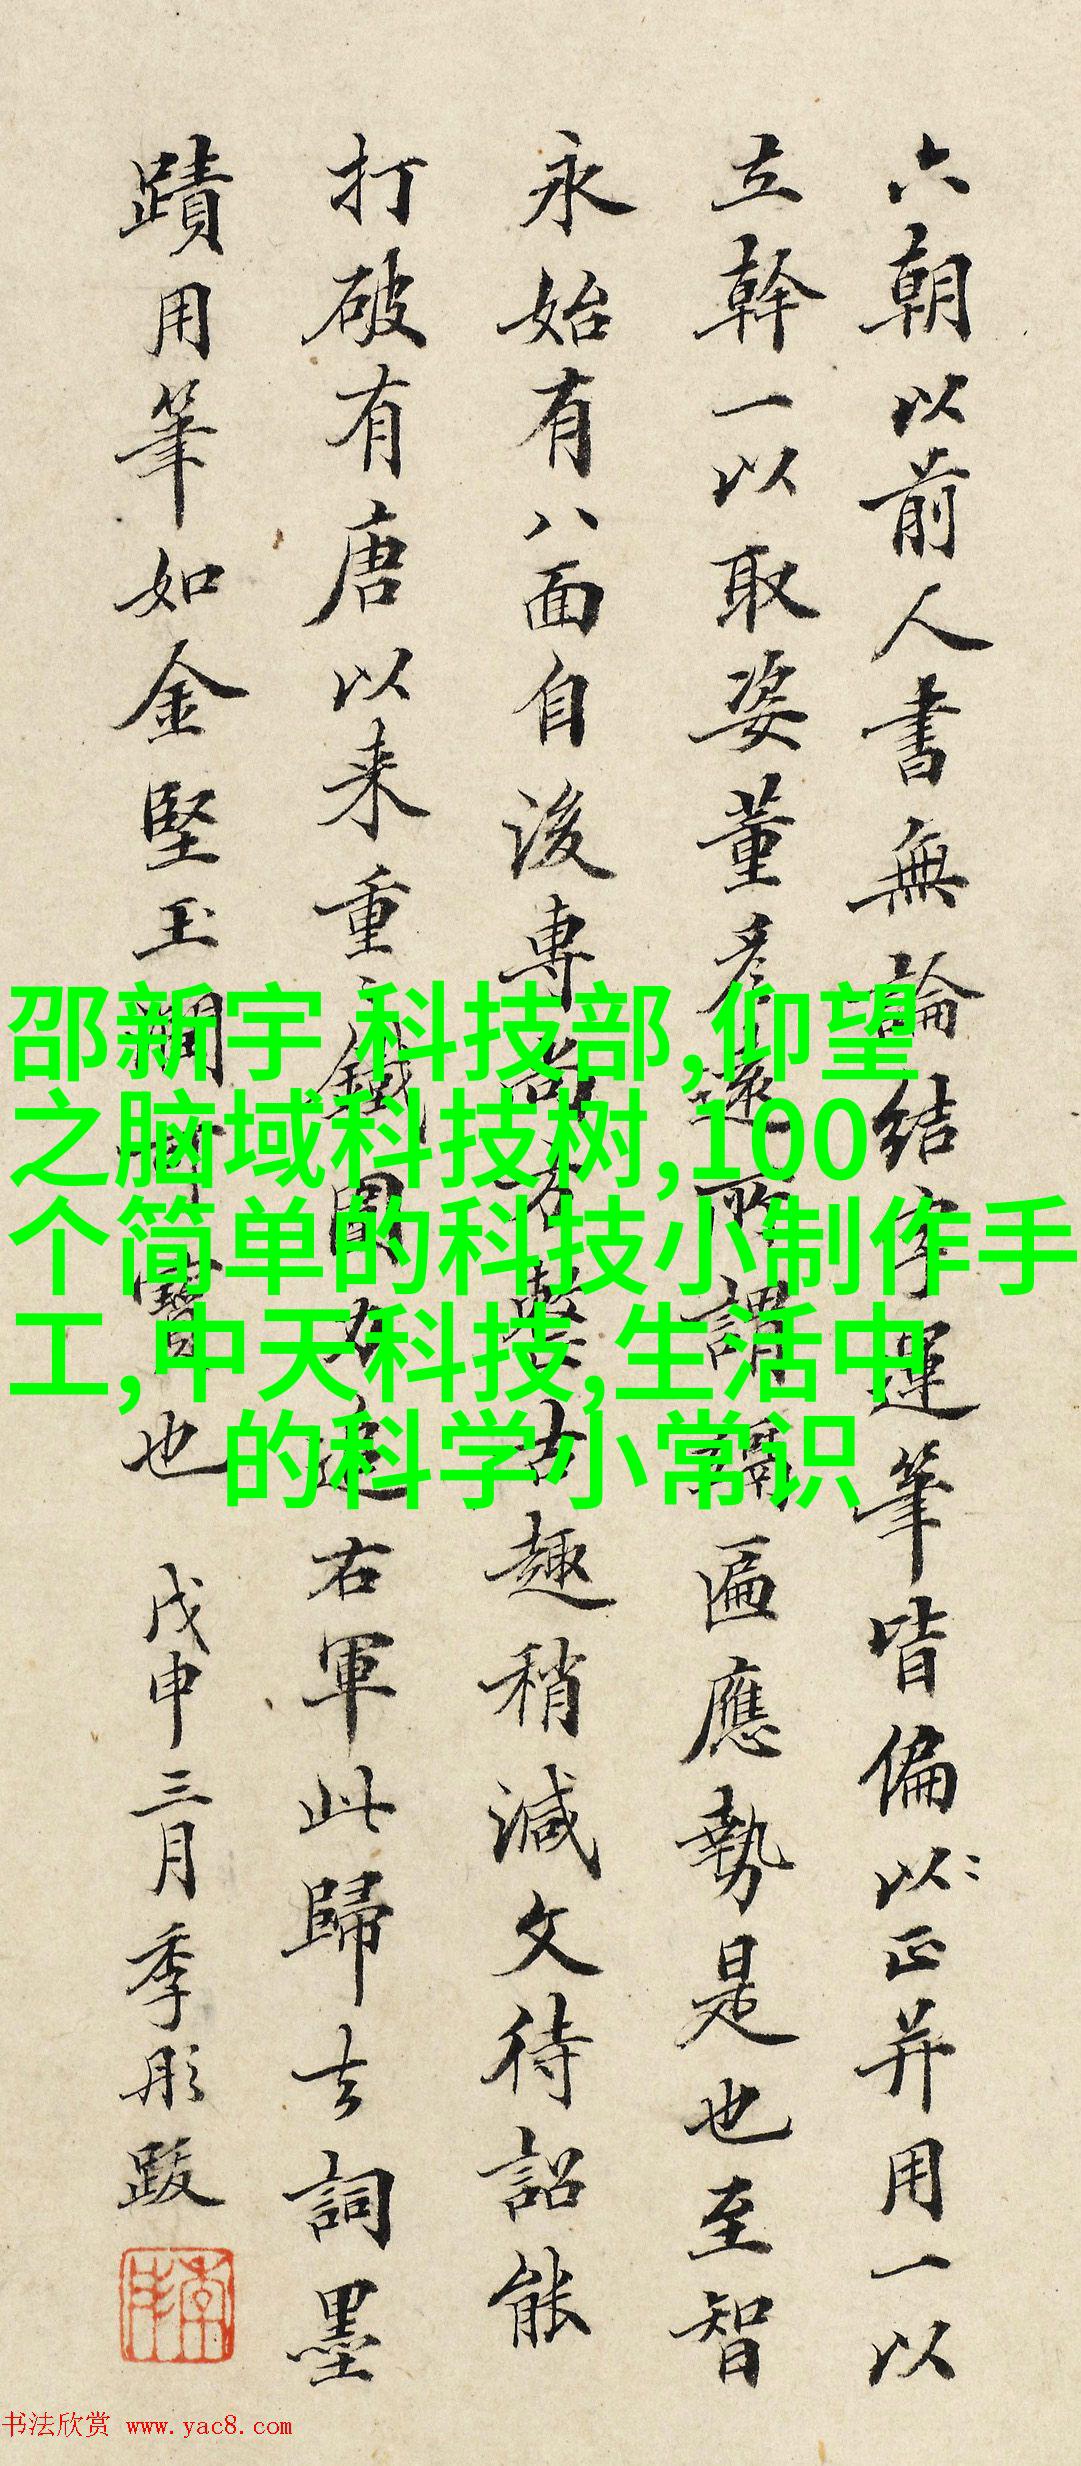 六朝以前人書無論結字運筆皆偏以正并用一以
立幹一以取姿董彦遠所謂隔匾應勢是也至智
永始有八面自後專尚方整古趣稍減文待詔能
打破有唐以来重鐵圍力追右軍此歸去詞墨
蹟用筆如金堅玉潤可寶也 戊申三月季彤跋
邵新宇 科技部,仰望
之脑域科技树,100
个简单的科技小制作手
工,中天科技,生活中
的科学小常识
书法欣赏 www.yac8.com